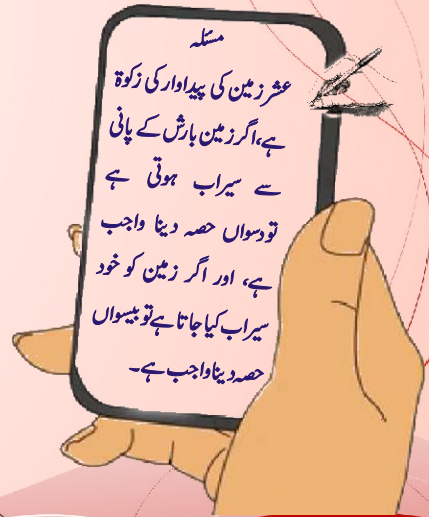 مسئلہ
عشر زمین کی پیداوار کی زکوۃ
ہے، اگر زمین بارش کے پانی
سے سیراب ہوتی ہے
تو دسواں حصہ دینا واجب
ہے، اور اگر زمین کو خود
سیراب کیا جاتا ہے تو بیسواں
حصہ دینا واجب ہے۔